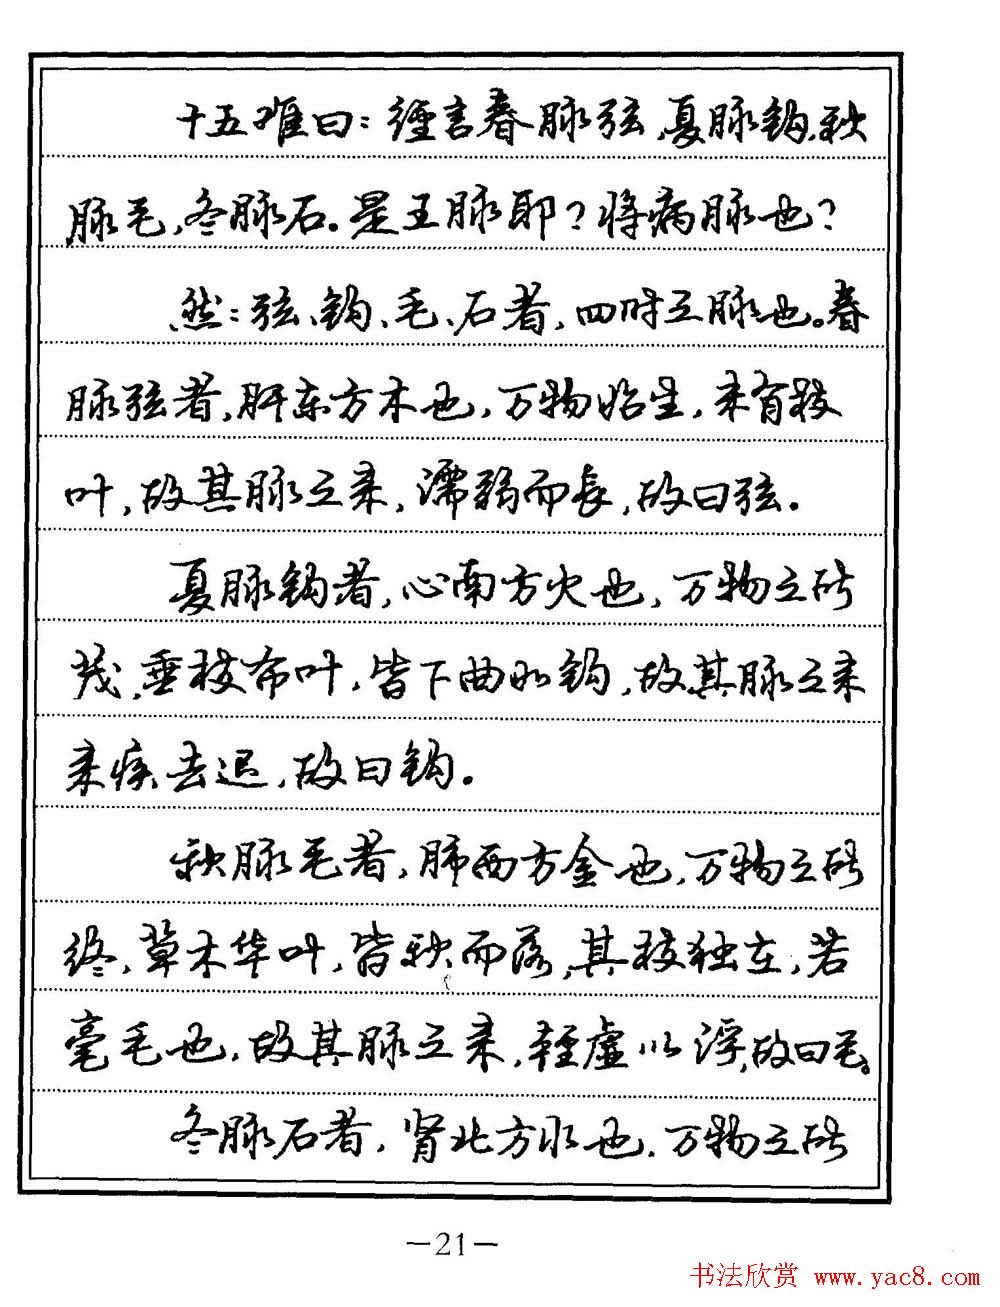 十五难曰：經言春脉弦，夏脉钩，秋
脉毛，冬脉石。是王脉耶？将病脉也？
然：弦、钩、毛、石者，四时之脉也。春
脉弦者，肝东方木也，万物始生，未有枝
叶，故其脉之来，濡弱而長，故曰弦。
夏脉钩者，心南方火也，万物之所
茂，垂枝布叶，皆下曲如钩，故其脉之来
来疾去迟，故曰钩。
秋脉毛者，肺西方金也，万物之所
终，草木华叶，皆秋而落，其枝独在，若
毫毛也，故其脉之来，轻虚以浮，故曰毛。
冬脉石者，肾北方水也，万物之所
—21—
书法欣赏 www.yac8.com